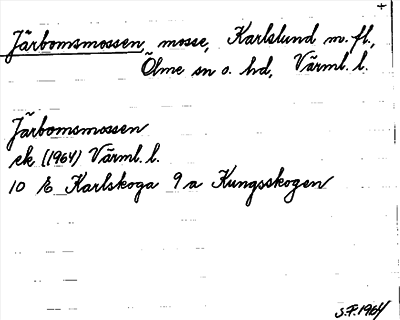 +
Järbomsmossen, mosse, Karlslund m. fl.,
Ölme sn o. hd, Värml. l.
Järbomsmossen
ek (1964) Värml. l.
10 E Karlskoga 9 a Kungsskogen
S.F. 1964